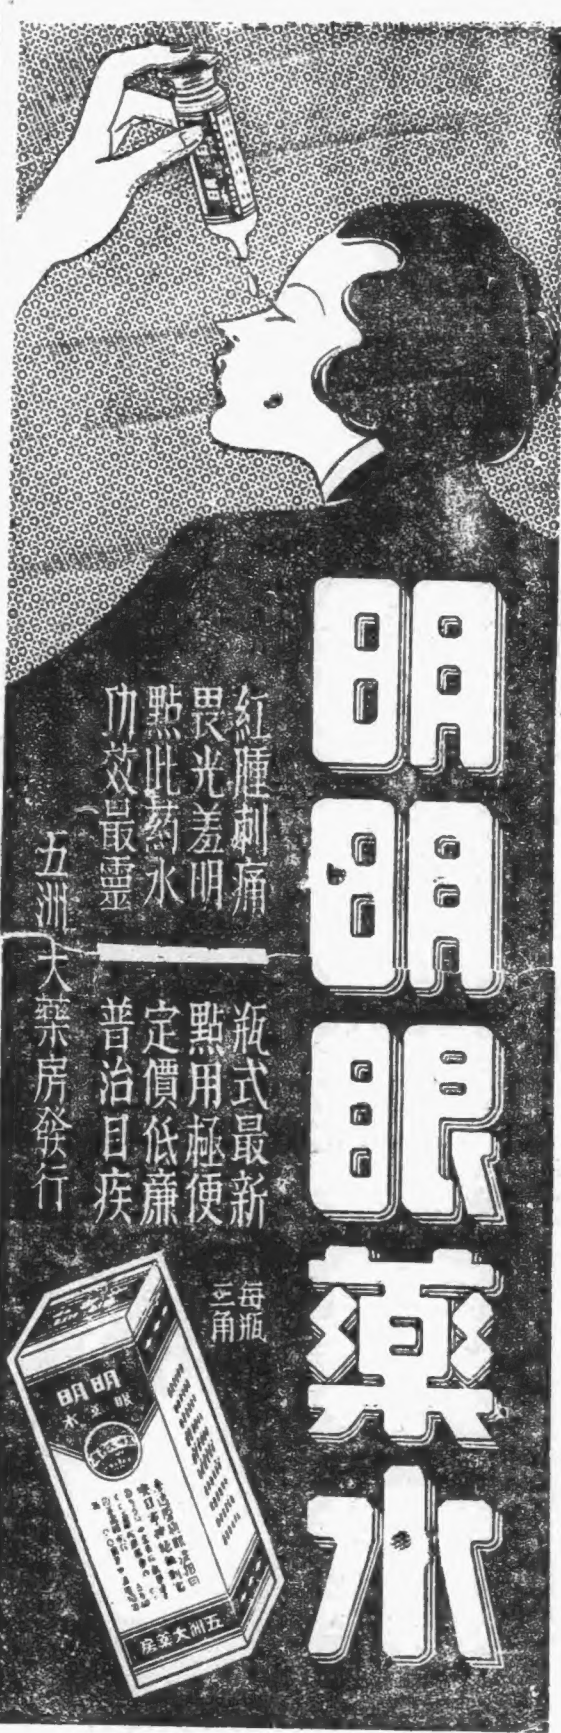 明明眼藥水
紅腫刺痛
畏光羞明
點此葯水
功效最靈
瓶式最新
點用極便
定價低廉
普治目疾
每瓶
三角
五洲大藥房發行
明明
眼藥水
五洲大藥房